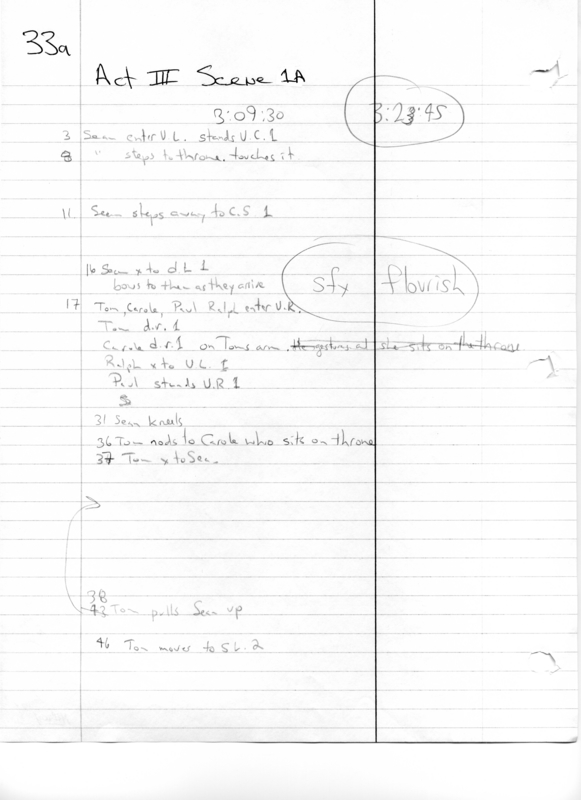 33a
Act III Scene 1A
3:09:30
3:23:45
3 Sean enter U L. stands U.C. 1
8 " steps to throne. touches it
11 Sean steps away to C.S 1
16 Sean x to d.L 1
bows to them as they arrive
sfx flourish
17 Tom, Carole, Paul Ralph enter U.R.
Tom d.r. 1
Carole d.r. 1 on Toms arm. she sits on the throne
Ralph x to U L. 1
Paul stands U.R 1
31 Sean kneels
36 Tom nods to Carole who sits on throne
37 Tom x to Sean
38
43 Tom pulls Sean up
46 Tom moves to S L. 2